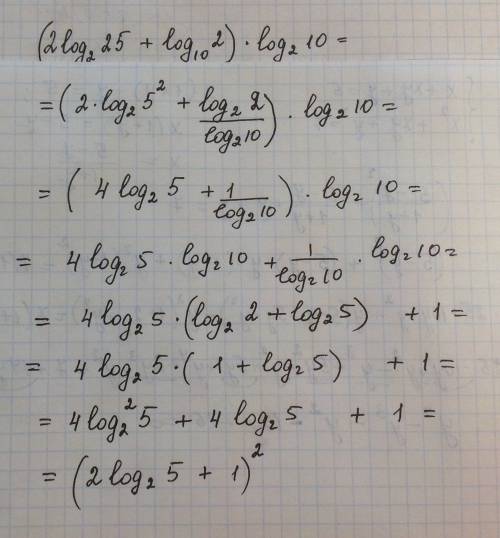 (2log₂25 + log₁₀2) · log₂10 =
= (2 · log₂5² + log₂2/log₂10) · log₂10 =
= (4log₂5 + 1/log₂10) · log₂10 =
= 4log₂5 · log₂10 + 1/log₂10 · log₂10 =
= 4log₂5 · (log₂2 + log₂5) + 1 =
= 4log₂5 · (1 + log₂5) + 1 =
= 4log₂²5 + 4log₂5 + 1 =
= (2log₂5 + 1)²